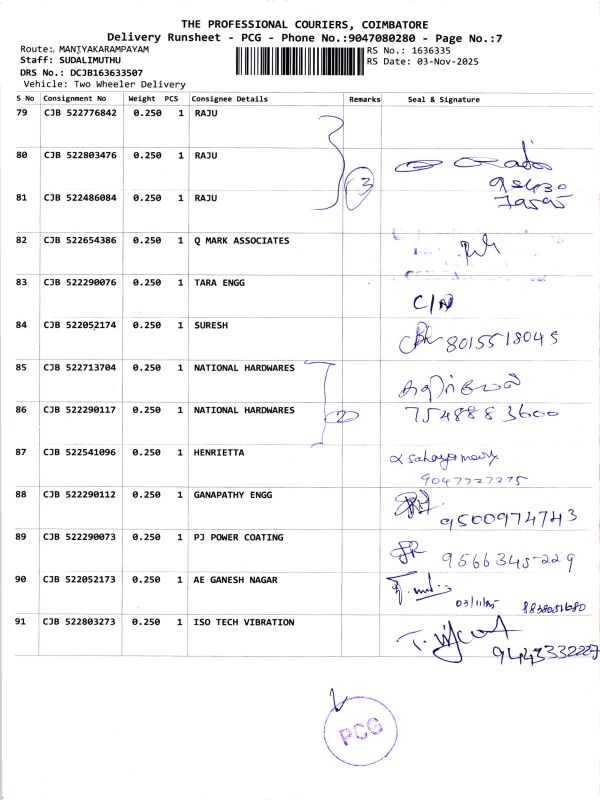 THE PROFESSIONAL COURIERS, COIMBATORE
Delivery Runsheet - PCG - Phone No.:9047080280 - Page No.:7
Route: MANIYAKARAMPAYAM RS No.: 1636335
Staff: SUDALIMUTHU RS Date: 03-Nov-2025
DRS No.: DCJB163633507
Vehicle: Two Wheeler Delivery
S No Consignment No Weight PCS Consignee Details Remarks Seal & Signature
79 CJB 522776842 0.250 1 RAJU
80 CJB 522803476 0.250 1 RAJU
3
81 CJB 522486084 0.250 1 RAJU
82 CJB 522654386 0.250 1 Q MARK ASSOCIATES
83 CJB 522290076 0.250 1 TARA ENGG
C/N
84 CJB 522052174 0.250 1 SURESH
8015518045
85 CJB 522713704 0.250 1 NATIONAL HARDWARES
86 CJB 522290117 0.250 1 NATIONAL HARDWARES 2 7548883600
87 CJB 522541096 0.250 1 HENRIETTA
9047727275
88 CJB 522290112 0.250 1 GANAPATHY ENGG
9500974743
89 CJB 522290073 0.250 1 PJ POWER COATING
9566345229
90 CJB 522052173 0.250 1 AE GANESH NAGAR
03/11/25
91 CJB 522803273 0.250 1 ISO TECH VIBRATION
9443332227
PCG